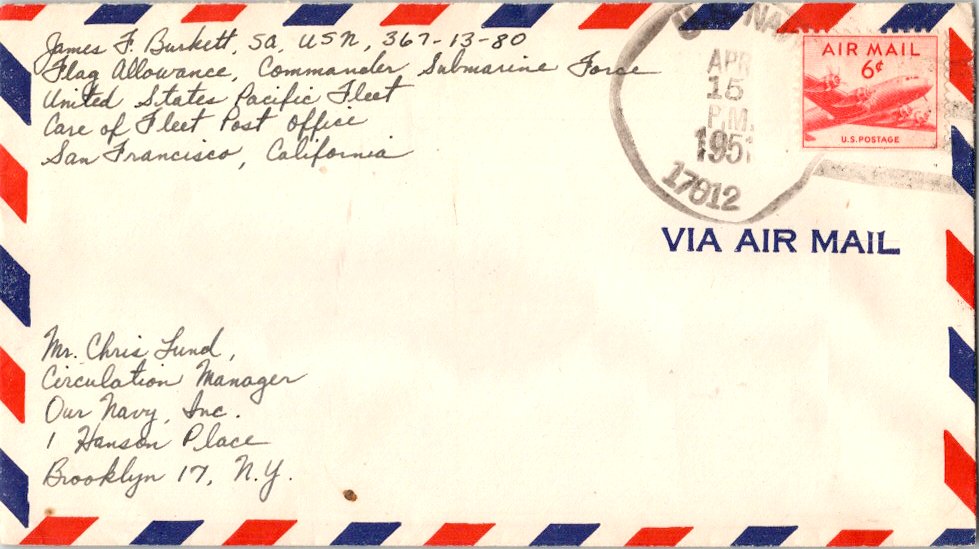 James F. Burkett, SA, USN, 367-13-80
Flag Allowance, Commander Submarine Force
United States Pacific Fleet
Care of Fleet Post Office
San Francisco, California
APR
15
P.M.
1951
17012
AIR MAIL
6¢
U.S. POSTAGE
VIA AIR MAIL
Mr. Chris Lund,
Circulation Manager
Our Navy, Inc.
1 Hanson Place
Brooklyn 17, N.Y.